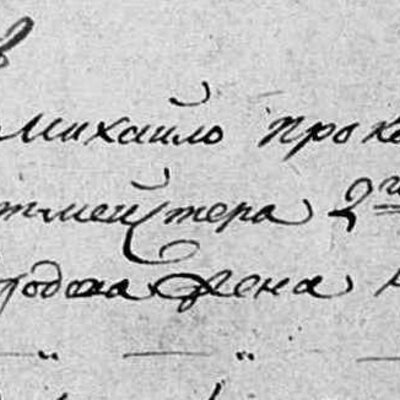 в
Михайло Проко
тмейстера 2го
жена
— " — " —